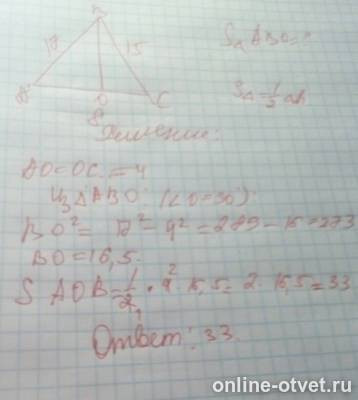 B
17
15
A
O
C
8
S△ ABO = ?
S△ = 1/2 ah
Решение:
AO = OC = 4
Из △ ABO: (∠O = 90°)
BO² = 17² - 4² = 289 - 16 = 273
BO = 16,5.
S AOB = 1/2 · 4 · 16,5 = 2 · 16,5 = 33
Ответ: 33.
online-otvet.ru